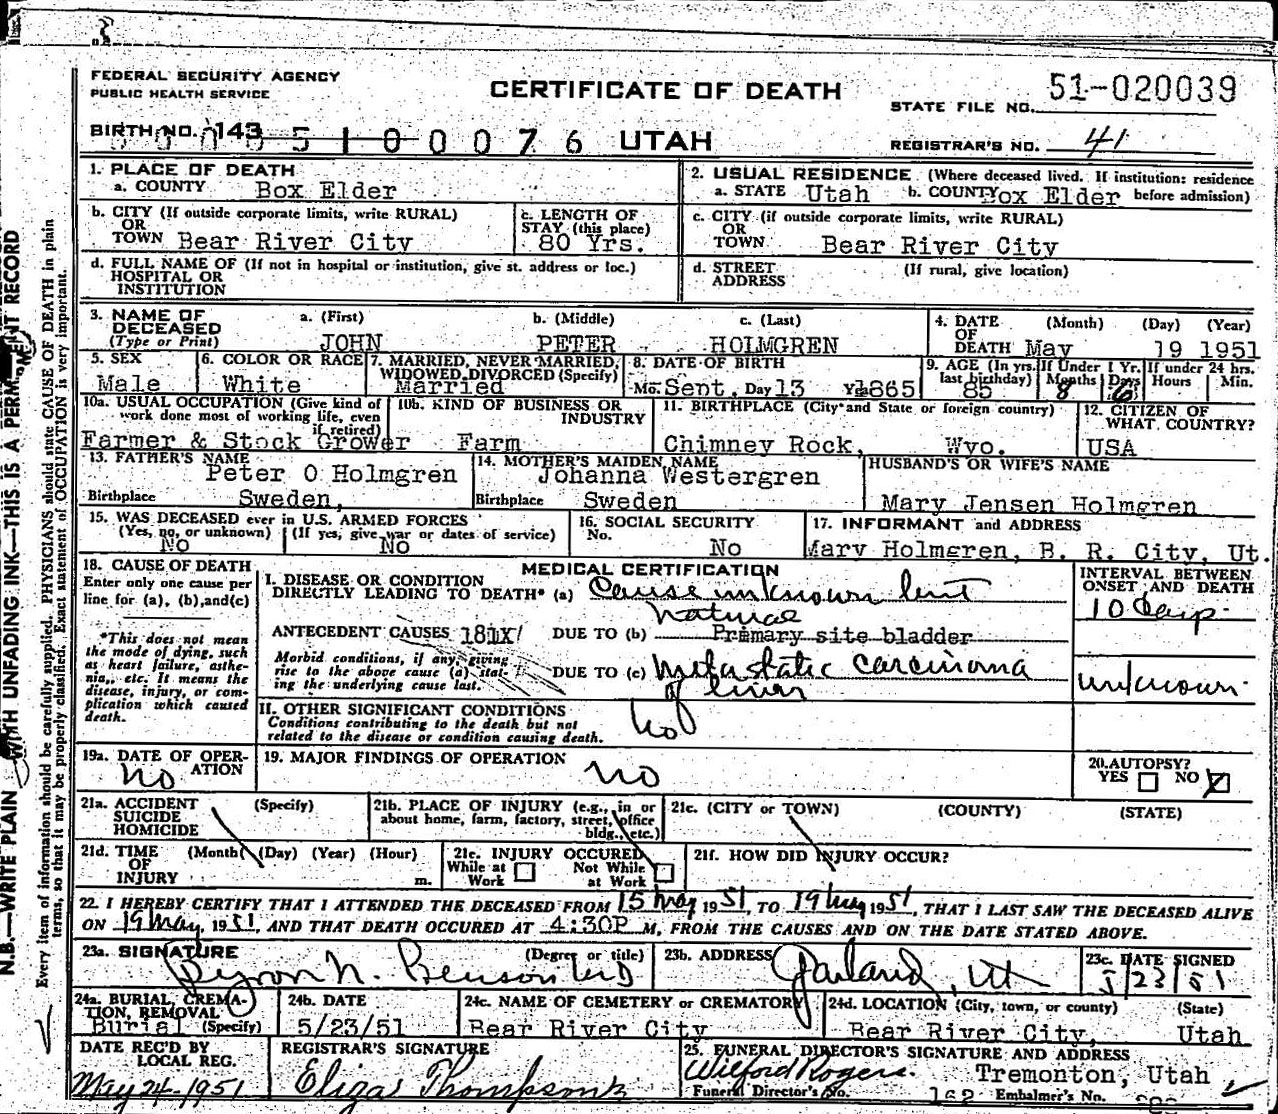 FEDERAL SECURITY AGENCY
PUBLIC HEALTH SERVICE
CERTIFICATE OF DEATH
STATE FILE NO. 51-020039
BIRTH NO. 143
510076 UTAH
REGISTRAR'S NO. 41
1. PLACE OF DEATH
a. COUNTY Box Elder
2. USUAL RESIDENCE (Where deceased lived. If institution: residence before admission)
a. STATE Utah b. COUNTY Box Elder
b. CITY (If outside corporate limits, write RURAL)
OR
TOWN Bear River City
c. LENGTH OF
STAY (this place)
80 Yrs.
c. CITY (if outside corporate limits, write RURAL)
OR
TOWN Bear River City
d. FULL NAME OF (If not in hospital or institution, give st. address or loc.)
HOSPITAL OR
INSTITUTION
d. STREET (If rural, give location)
ADDRESS
3. NAME OF a. (First) b. (Middle) c. (Last)
DECEASED
(Type or Print) JOHN PETER HOLMGREN
4. DATE (Month) (Day) (Year)
OF
DEATH May 19 1951
5. SEX
Male
6. COLOR OR RACE
White
7. MARRIED, NEVER MARRIED,
WIDOWED DIVORCED (Specify)
Married
8. DATE OF BIRTH
Mo. Sept. Day 13 Yr 1865
9. AGE (In yrs. last birthday)
85
If Under 1 Yr.
Months Days
8 6
If under 24 hrs.
Hours Min.
10a. USUAL OCCUPATION (Give kind of
work done most of working life, even
if retired)
Farmer & Stock Grower
10b. KIND OF BUSINESS OR
INDUSTRY
Farm
11. BIRTHPLACE (City and State or foreign country)
Chimney Rock, Wyo.
12. CITIZEN OF
WHAT COUNTRY?
USA
13. FATHER'S NAME
Peter O Holmgren
Birthplace Sweden,
14. MOTHER'S MAIDEN NAME
Johanna Westergren
Birthplace Sweden
HUSBAND'S OR WIFE'S NAME
Mary Jensen Holmgren
15. WAS DECEASED ever in U.S. ARMED FORCES
(Yes, no, or unknown) (If yes, give war or dates of service)
No No
16. SOCIAL SECURITY
No. No
17. INFORMANT and ADDRESS
Mary Holmgren, B. R. City, Ut.
18. CAUSE OF DEATH
Enter only one cause per
line for (a), (b), and (c)
*This does not mean
the mode of dying, such
as heart failure, asthe-
nia, etc. It means the
disease, injury, or com-
plication which caused
death.
MEDICAL CERTIFICATION
I. DISEASE OR CONDITION
DIRECTLY LEADING TO DEATH* (a) Cause unknown but
natural
ANTECEDENT CAUSES 181X DUE TO (b) Primary site bladder
Morbid conditions, if any, giving
rise to the above cause (a) stat-
ing the underlying cause last.
DUE TO (c) metastatic carcinoma
of liver
II. OTHER SIGNIFICANT CONDITIONS
Conditions contributing to the death but not
related to the disease or condition causing death.
no
INTERVAL BETWEEN
ONSET AND DEATH
10 days
unknown
19a. DATE OF OPER-
ATION
no
19. MAJOR FINDINGS OF OPERATION
no
20. AUTOPSY?
YES NO
21a. ACCIDENT (Specify)
SUICIDE
HOMICIDE
21b. PLACE OF INJURY (e.g., in or
about home, farm, factory, street, office
bldg., etc.)
21c. (CITY or TOWN) (COUNTY) (STATE)
21d. TIME (Month) (Day) (Year) (Hour)
OF
INJURY m.
21e. INJURY OCCURED
While at Work Not While at Work
21f. HOW DID INJURY OCCUR?
22. I HEREBY CERTIFY THAT I ATTENDED THE DECEASED FROM 15 May 1951, TO 19 May 1951, THAT I LAST SAW THE DECEASED ALIVE
ON 19 May, 1951, AND THAT DEATH OCCURED AT 4:30P M, FROM THE CAUSES AND ON THE DATE STATED ABOVE.
23a. SIGNATURE (Degree or title)
N. Benson MD
23b. ADDRESS
Garland, Ut
23c. DATE SIGNED
5/23/51
24a. BURIAL, CREMA-
TION, REMOVAL
Burial (Specify)
24b. DATE
5/23/51
24c. NAME OF CEMETERY or CREMATORY
Bear River City
24d. LOCATION (City, town, or county) (State)
Bear River City, Utah
DATE REC'D BY
LOCAL REG.
May 24 1951
REGISTRAR'S SIGNATURE
Eliza Thompson
25. FUNERAL DIRECTOR'S SIGNATURE AND ADDRESS
Wilford Rogers. Tremonton, Utah
Funeral Director's No. 162 Embalmer's No.
N.B.—WRITE PLAIN WITH UNFADING INK—THIS IS A PERMANENT RECORD
Every item of information should be carefully supplied. PHYSICIANS should state CAUSE OF DEATH in plain
terms, so that it may be properly classified. Exact statement of OCCUPATION is very important.